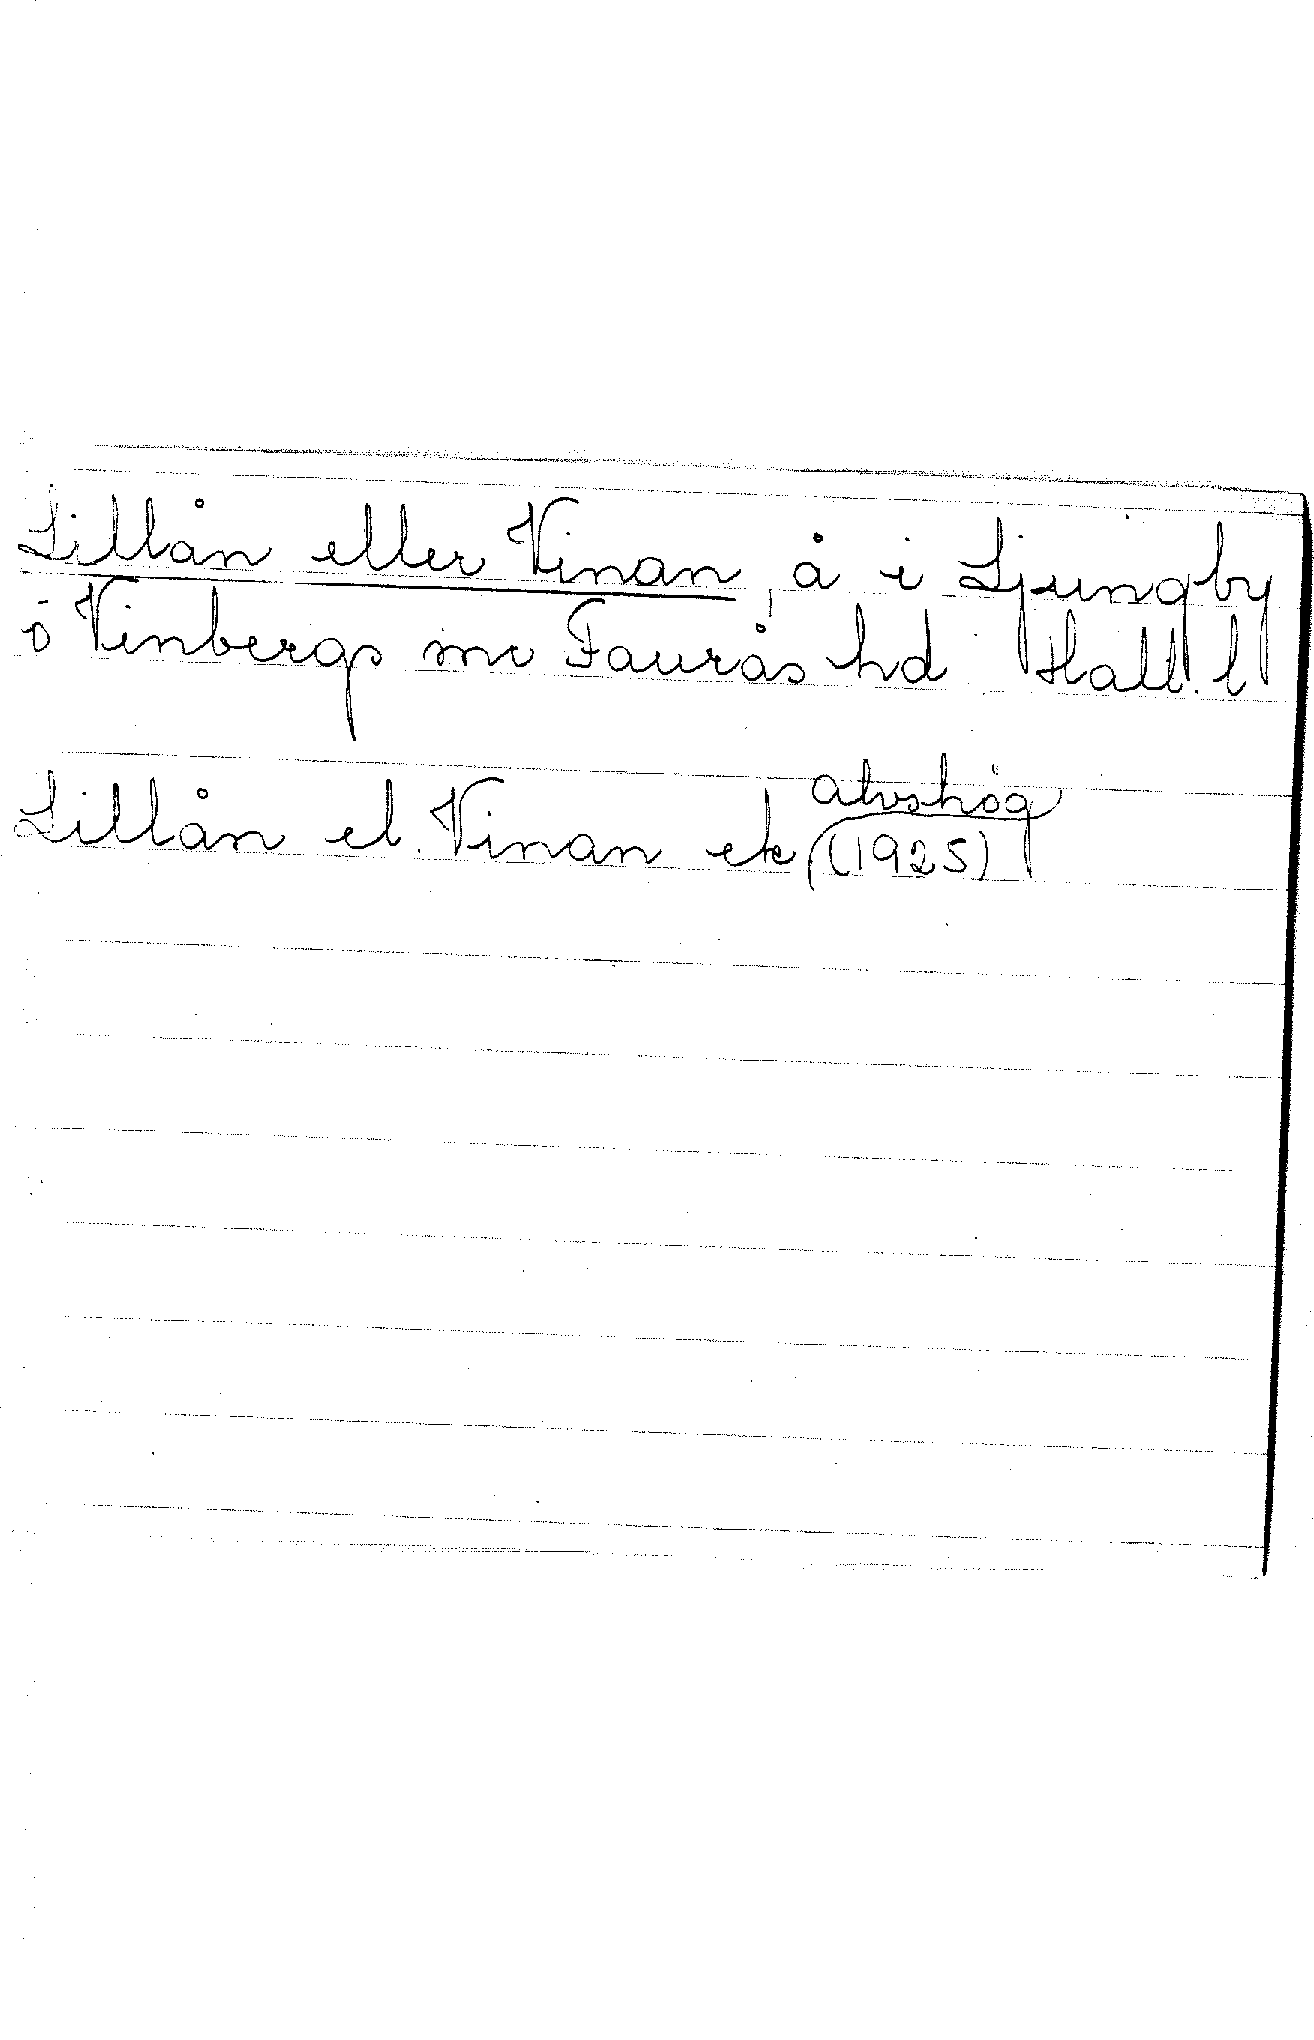 Lillån eller Vinan, å i Ljungby
o Vinbergs snr Faurås hd Hall. l
Lillån el. Vinan ek (1925)